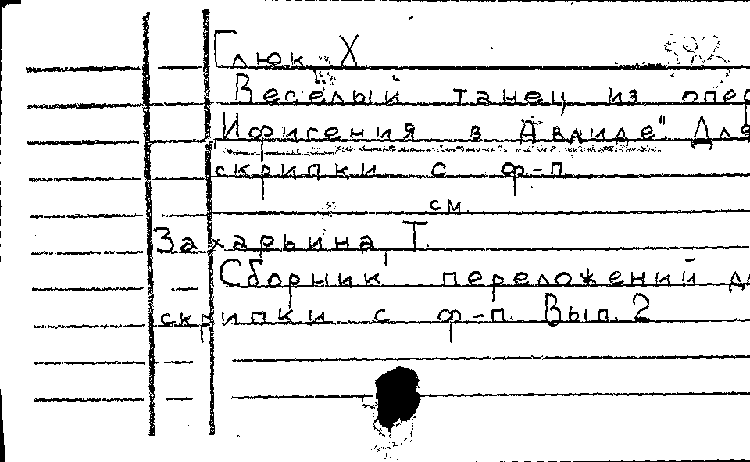 Глюк Х
Веселый танец из опер
Ифигения в Авлиде" Для
скрипки с ф-п
см.
Захарьина Т.
Сборник переложений дл
скрипки с ф-п. Вып. 2